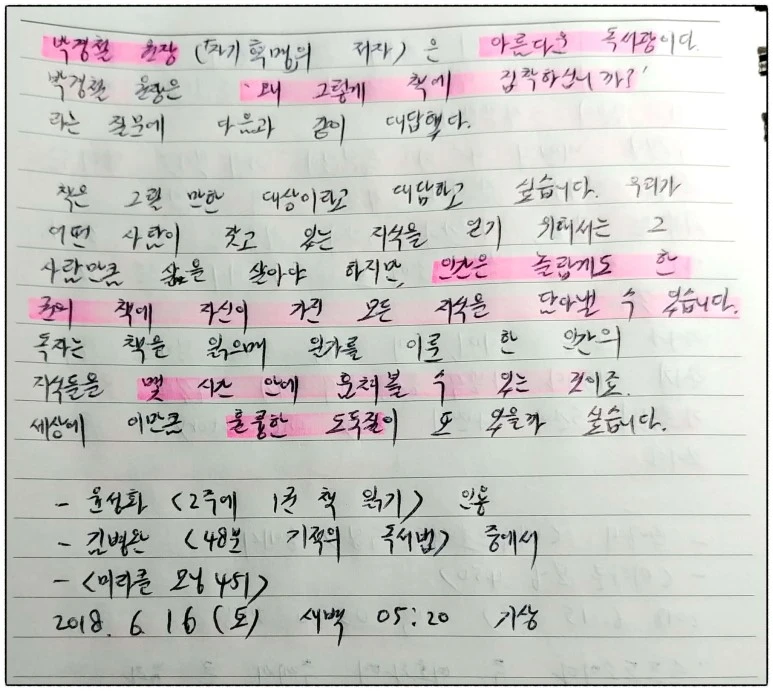 박경철 원장 (『자기 혁명』의 저자) 은 아름다운 독서광이다.
박경철 원장은 '왜 그렇게 책에 집착하십니까?'
라는 질문에 다음과 같이 대답했다.
책은 그럴 만한 대상이라고 대답하고 싶습니다. 우리가
어떤 사람이 갖고 있는 지식을 얻기 위해서는 그
사람만큼 삶을 살아야 하지만, 인간은 놀랍게도 한
권의 책에 자신이 가진 모든 지식을 담아낼 수 있습니다.
독자는 책을 읽으며 일가를 이룬 한 인간의
지식들을 몇 시간 안에 훔쳐볼 수 있는 것이죠.
세상에 이만큼 훌륭한 도둑질이 또 있을까 싶습니다.
- 윤성화 <2주에 1권 책 읽기> 인용
- 김병완 <48분 기적의 독서법> 중에서
- <미라클 모닝 451>
2018. 6. 16 (토) 새벽 05:20 기상